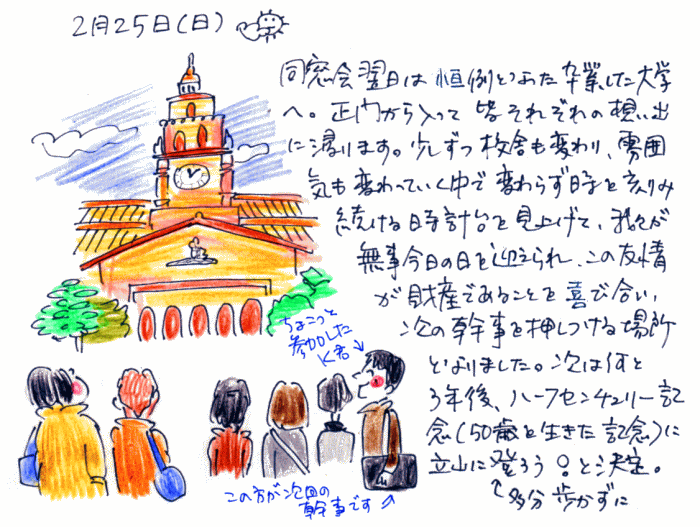 2月25日(日)
同窓会翌日は恒例となった卒業した大学
へ。正門から入って皆それぞれの想い出
に浸ります。少しずつ校舎も変わり、雰囲
気も変わっていく中で変わらず時を刻み
続ける時計台を見上げて、我々が
無事今日の日を迎えられ、この友情
が財産であることを喜び合い、
次の幹事を押しつける場所
となりました。次は何と
3年後、ハーフセンチュリー記
念(50歳を生きた記念)に
立山に登ろう!と決定。
↖多分歩かずに
ちょこっと
参加した
K君↘
この方が次回の
幹事です↗